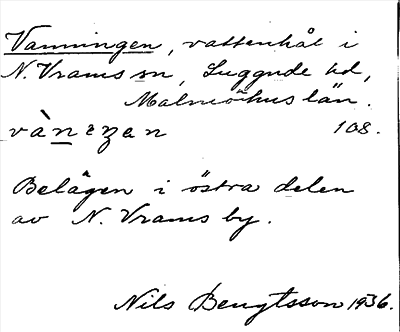 Vanningen, vattenhål i
N. Vrams sn, Luggude hd,
Malmöhus län.
108.
Belägen i östra delen
av N. Vrams by.
Nils Bengtsson 1936.